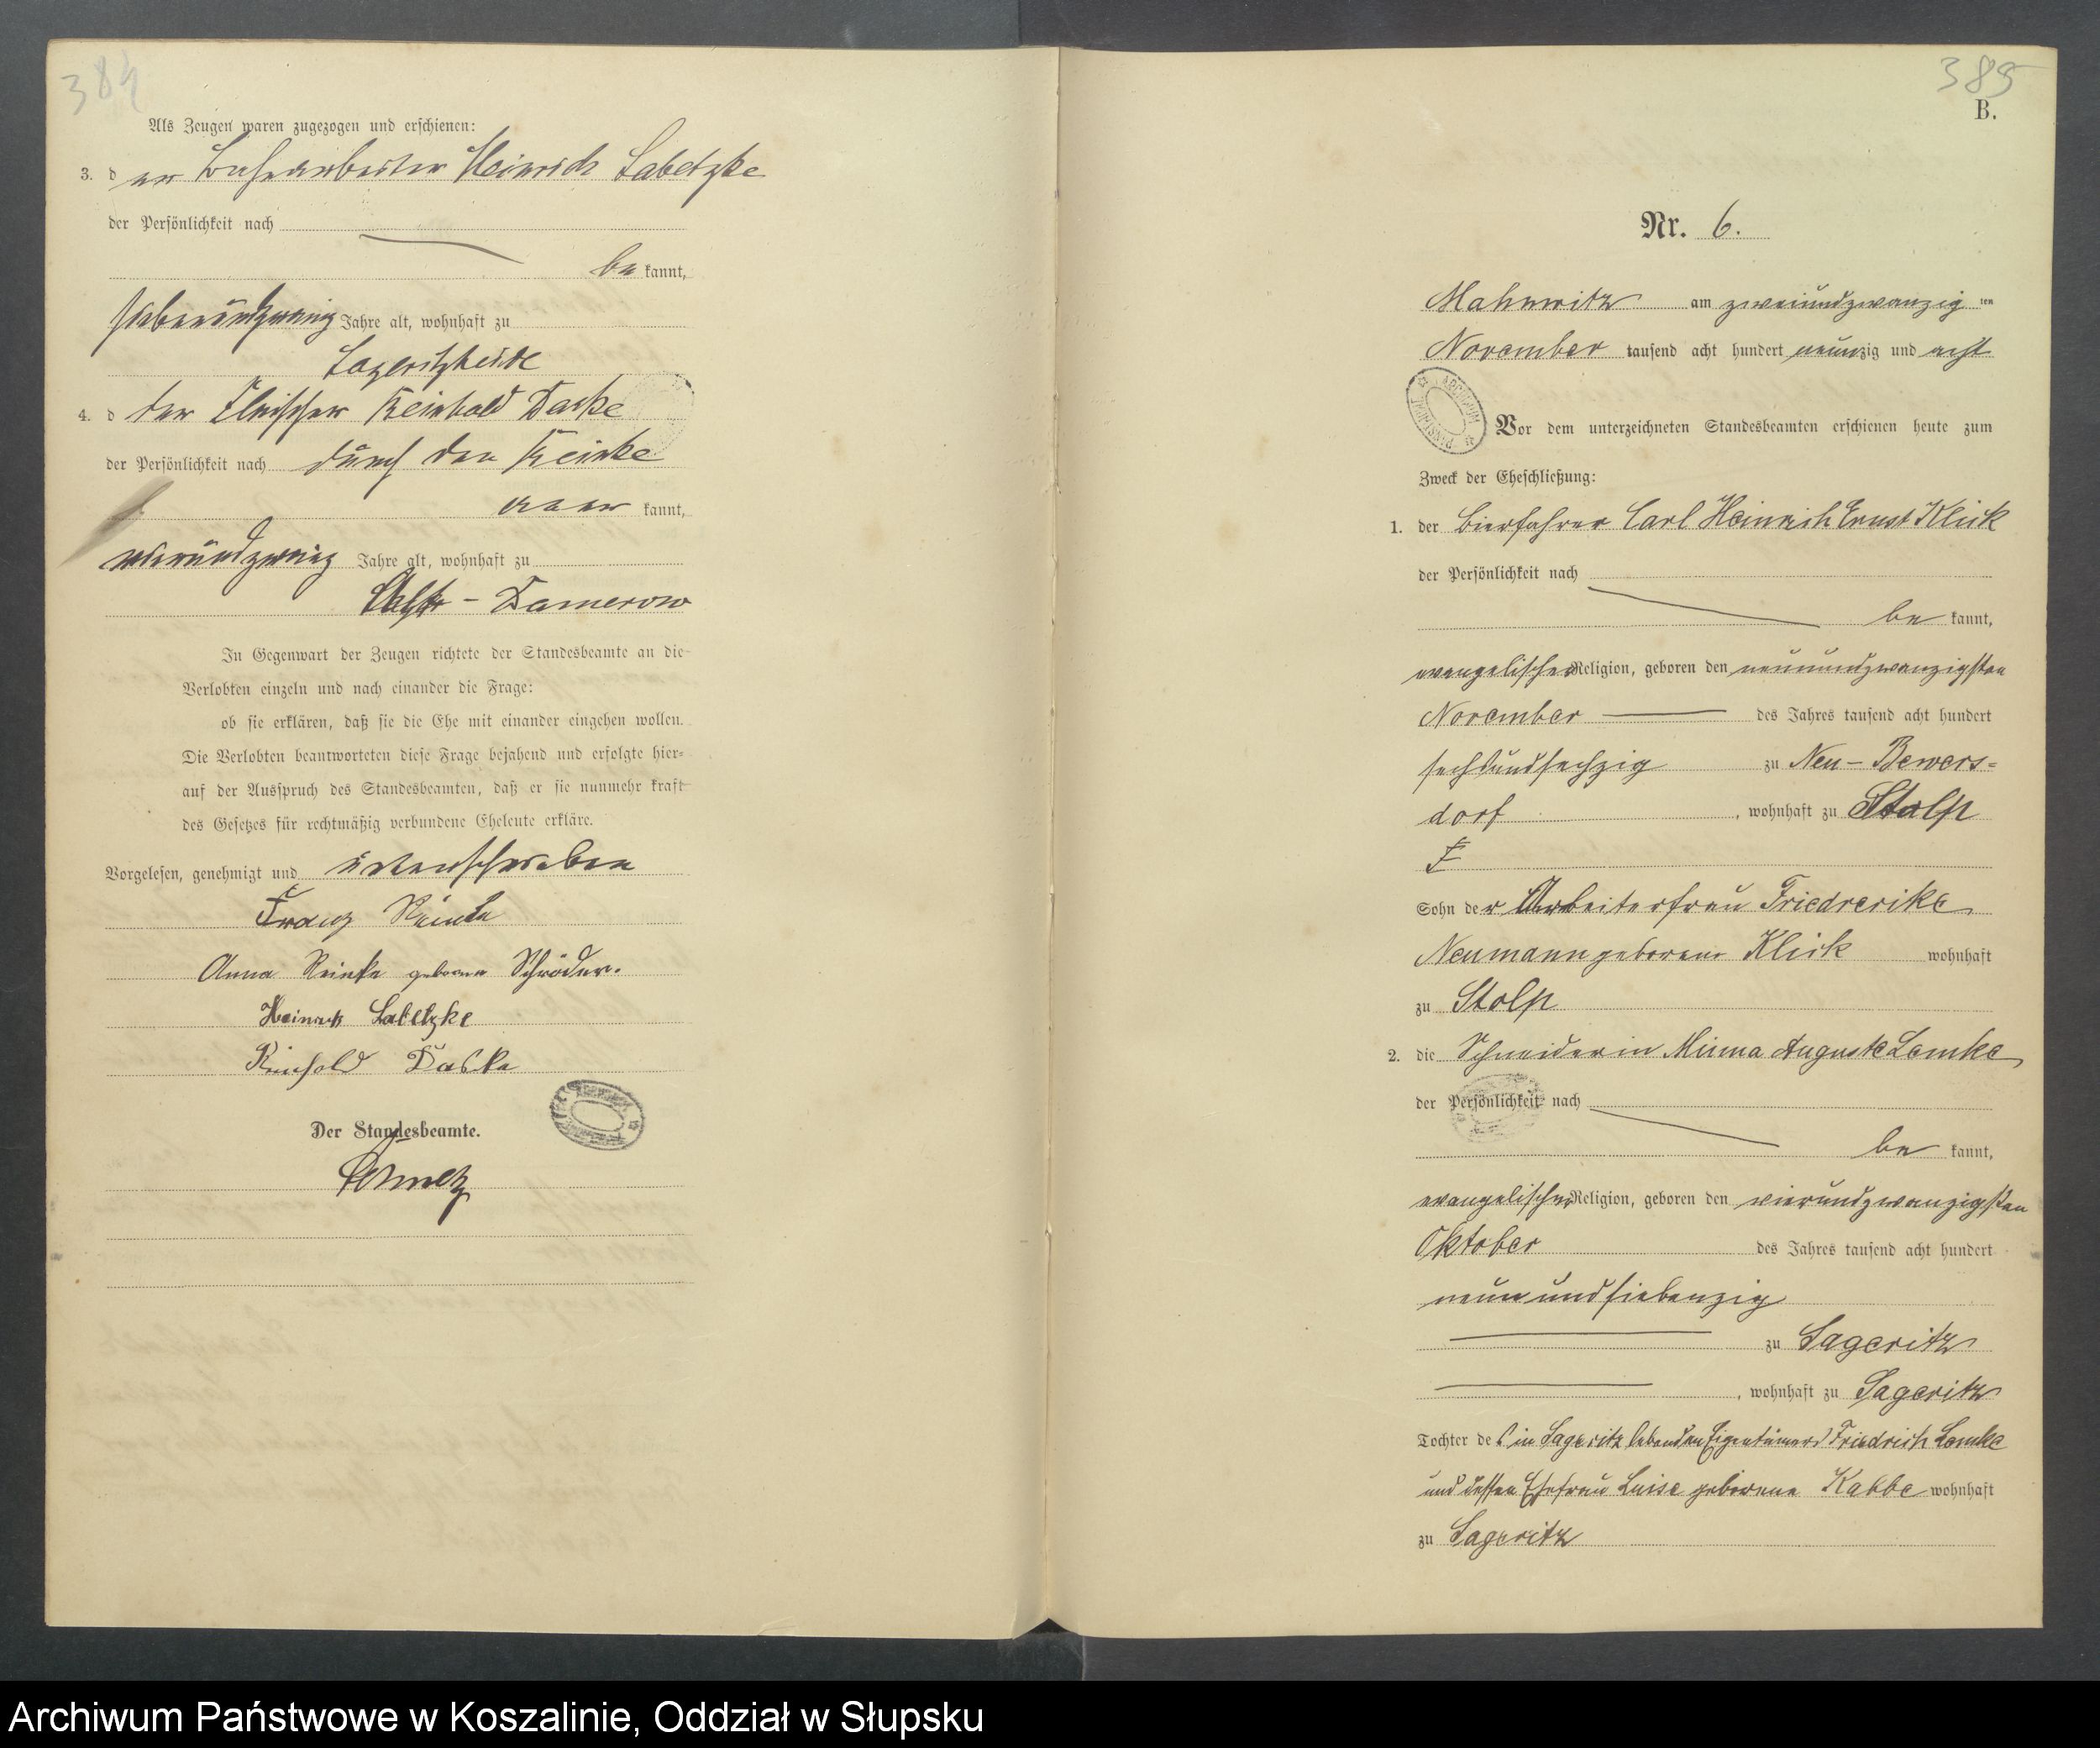 384
Als Zeugen waren zugezogen und erschienen:
3. d er Bahnarbeiter Heinrich Labetzke
der Persönlichkeit nach
be kannt,
siebenundzwanzig Jahre alt, wohnhaft zu
Lageritzheide
4. d der Fleischer Reinhold Daske
der Persönlichkeit nach durch den Reinke
aner kannt,
vierundzwanzig Jahre alt, wohnhaft zu
- Damerow
In Gegenwart der Zeugen richtete der Standesbeamte an die
Verlobten einzeln und nach einander die Frage:
ob sie erklären, daß sie die Ehe mit einander eingehen wollen.
Die Verlobten beantworteten diese Frage bejahend und erfolgte hier-
auf der Ausspruch des Standesbeamten, daß er sie nunmehr kraft
des Gesetzes für rechtmäßig verbundene Eheleute erkläre.
Vorgelesen, genehmigt und unterschrieben
Franz Reinke
Anna Reinke geborene Schröder.
Heinrich Labetzke
Reinhold Daske
Der Standesbeamte.
385
B.
Nr. 6.
Mahnwitz am zweiundzwanzig ten
November tausend acht hundert neunzig und acht
Vor dem unterzeichneten Standesbeamten erschienen heute zum
Zweck der Eheschließung:
1. der Bierfahrer Carl Heinrich Ernst Klick
der Persönlichkeit nach
be kannt,
evangelischer Religion, geboren den neunundzwanzigsten
November des Jahres tausend acht hundert
sechsundsechzig zu Neu-Bewers-
dorf, wohnhaft zu Stolp
Sohn der Arbeiterfrau Friedrerike
Neumann geborene Klick wohnhaft
zu Stolp
2. die Schneiderin Minna Auguste Lemke
der Persönlichkeit nach
be kannt,
evangelischer Religion, geboren den vierundzwanzigsten
Oktober des Jahres tausend acht hundert
neunundsiebenzig
zu Lageritz
, wohnhaft zu Lageritz
Tochter des in Lageritz lebenden Eigentümers Friedrich Lemke
und dessen Ehefrau Luise geborene Kabbe wohnhaft
zu Lageritz
Archiwum Państwowe w Koszalinie, Oddział w Słupsku